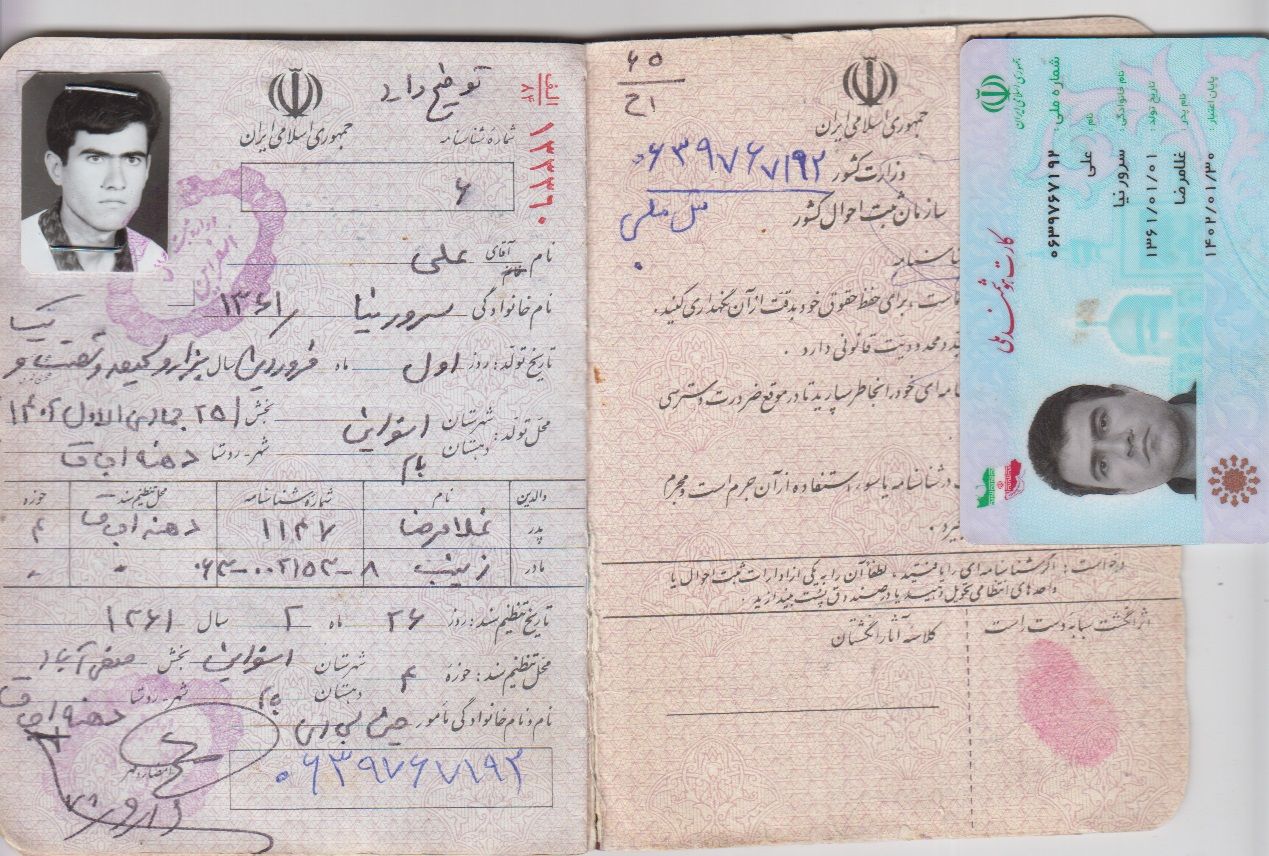 توضیح دارد
الف
۸۴
۱۳۳۳۹۰
جمهوری اسلامی ایران
شمارهٔ شناسنامه
۶
نام آقای خانم علی
نام خانوادگی سرورنیا
/۱۳۶۱
تاریخ تولد: روز اول ماه فروردین سال یکهزار و سیصد و شصت و
یک
محل تولد: شهرستان اسفراین بخش /۲۵ جمادی الاول ۱۴۰۲
دهستان بام شهر-روستا دهنه اجاق
والدین نام شمارهٔ شناسنامه محل تنظیم سند حوزه
پدر غلامرضا ۱۱۴۷ دهنه اجاق ۴
مادر زینب
تاریخ تنظیم سند: روز ۲۶ ماه ۲ سال ۱۳۶۱
محل تنظیم سند: حوزه ۴ شهرستان اسفراین بخش صفی آباد
دهستان بام شهر-روستا دهنه اجاق
نام و نام خانوادگی مأمور
۰۶۳۹۷۶۷۱۹۲
امضاء و مهر
۶۵
ح۱
جمهوری اسلامی ایران
وزارت کشور
۰۶۳۹۷۶۷۱۹۲
سازمان ثبت احوال کشور
ش ملی
است، برای حفظ حقوقی خود بدقت از آن نگهداری کنید.
محدودیت قانونی دارد.
نامه ای خود را بخاطر بسپارید تا در موقع ضرورت دسترسی
شناسنامه یا سوء استفاده از آن جرم است و مجرم
درخواست: اگر شناسنامه ای را یافتید، لطفاً آن را به یکی از ادارات ثبت احوال یا
واحدهای انتظامی تحویل دهید یا در صندوق پست بیندازید.
اثر انگشت سبابه دست راست
کلاسه آثار انگشتان
جمهوری اسلامی ایران
کارت هوشمند ملی
شماره ملی: ۰۶۳۹۷۶۷۱۹۲
نام: علی
نام خانوادگی: سرورنیا
تاریخ تولد: ۱۳۶۱/۰۱/۰۱
نام پدر: غلامرضا
پایان اعتبار: ۱۴۰۲/۰۱/۳۰